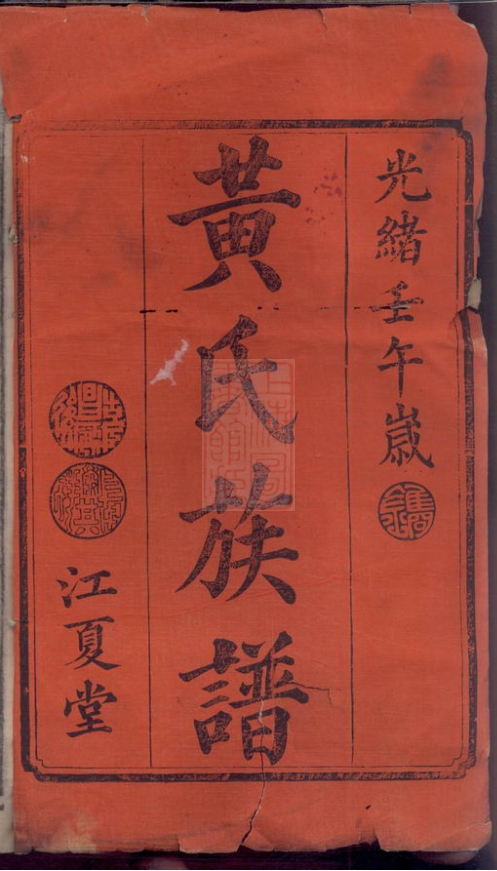 光緒壬午歲
黃氏族譜
江夏堂